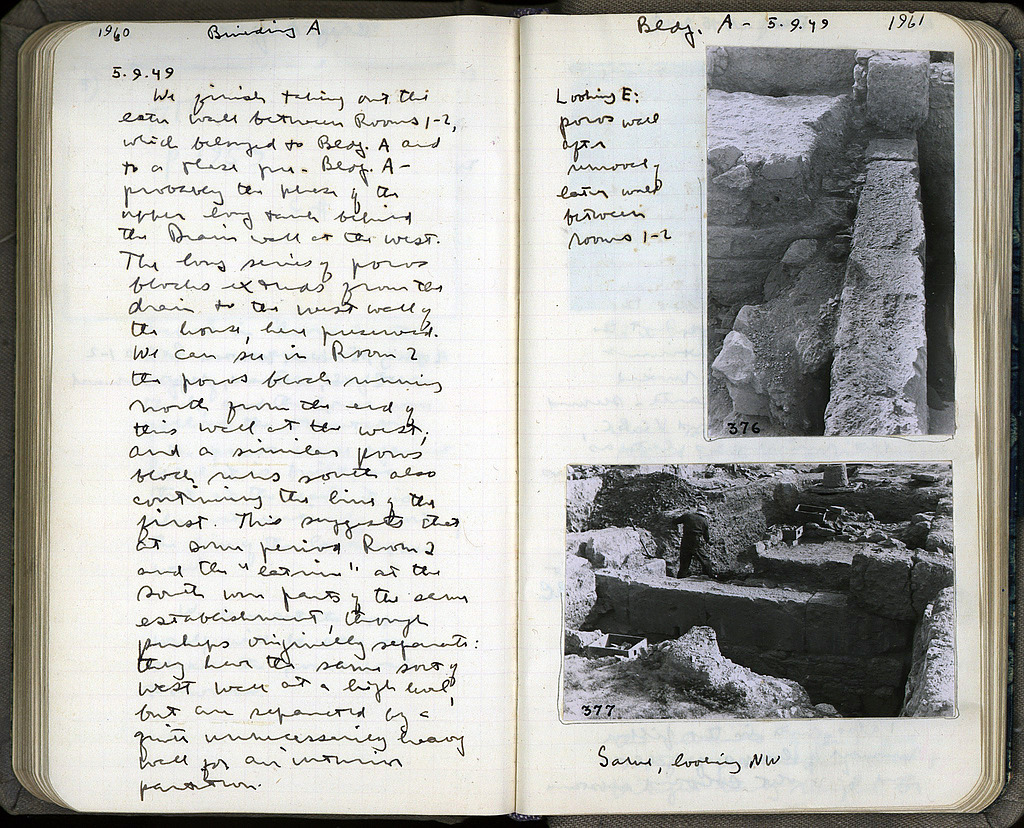 1960 Building A
5.9.49
We finish taking out the
later wall between Rooms 1-2,
which belonged to Bldg. A and
to a phase pre-Bldg. A-
probably the phase of the
upper long tank behind
the Drain wall at the west.
The long series of poros
blocks extends from the
drain to the west wall of
the house, here preserved.
We can see in Room 2
the poros block running
north from the end of
this wall at the west,
and a similar poros
block runs south also
continuing the line of the
first. This suggests that
at some period Room 2
and the "latrine" at the
south were parts of the same
establishment, though
perhaps originally separate:
they have the same sort of
west wall at a high level,
but are separated by a
quite unnecessarily heavy
wall for an interior
partition.
Bldg. A - 5.9.49 1961
Looking E:
poros wall
after
removal of
later wall
between
rooms 1-2
376
377
Same, looking NW